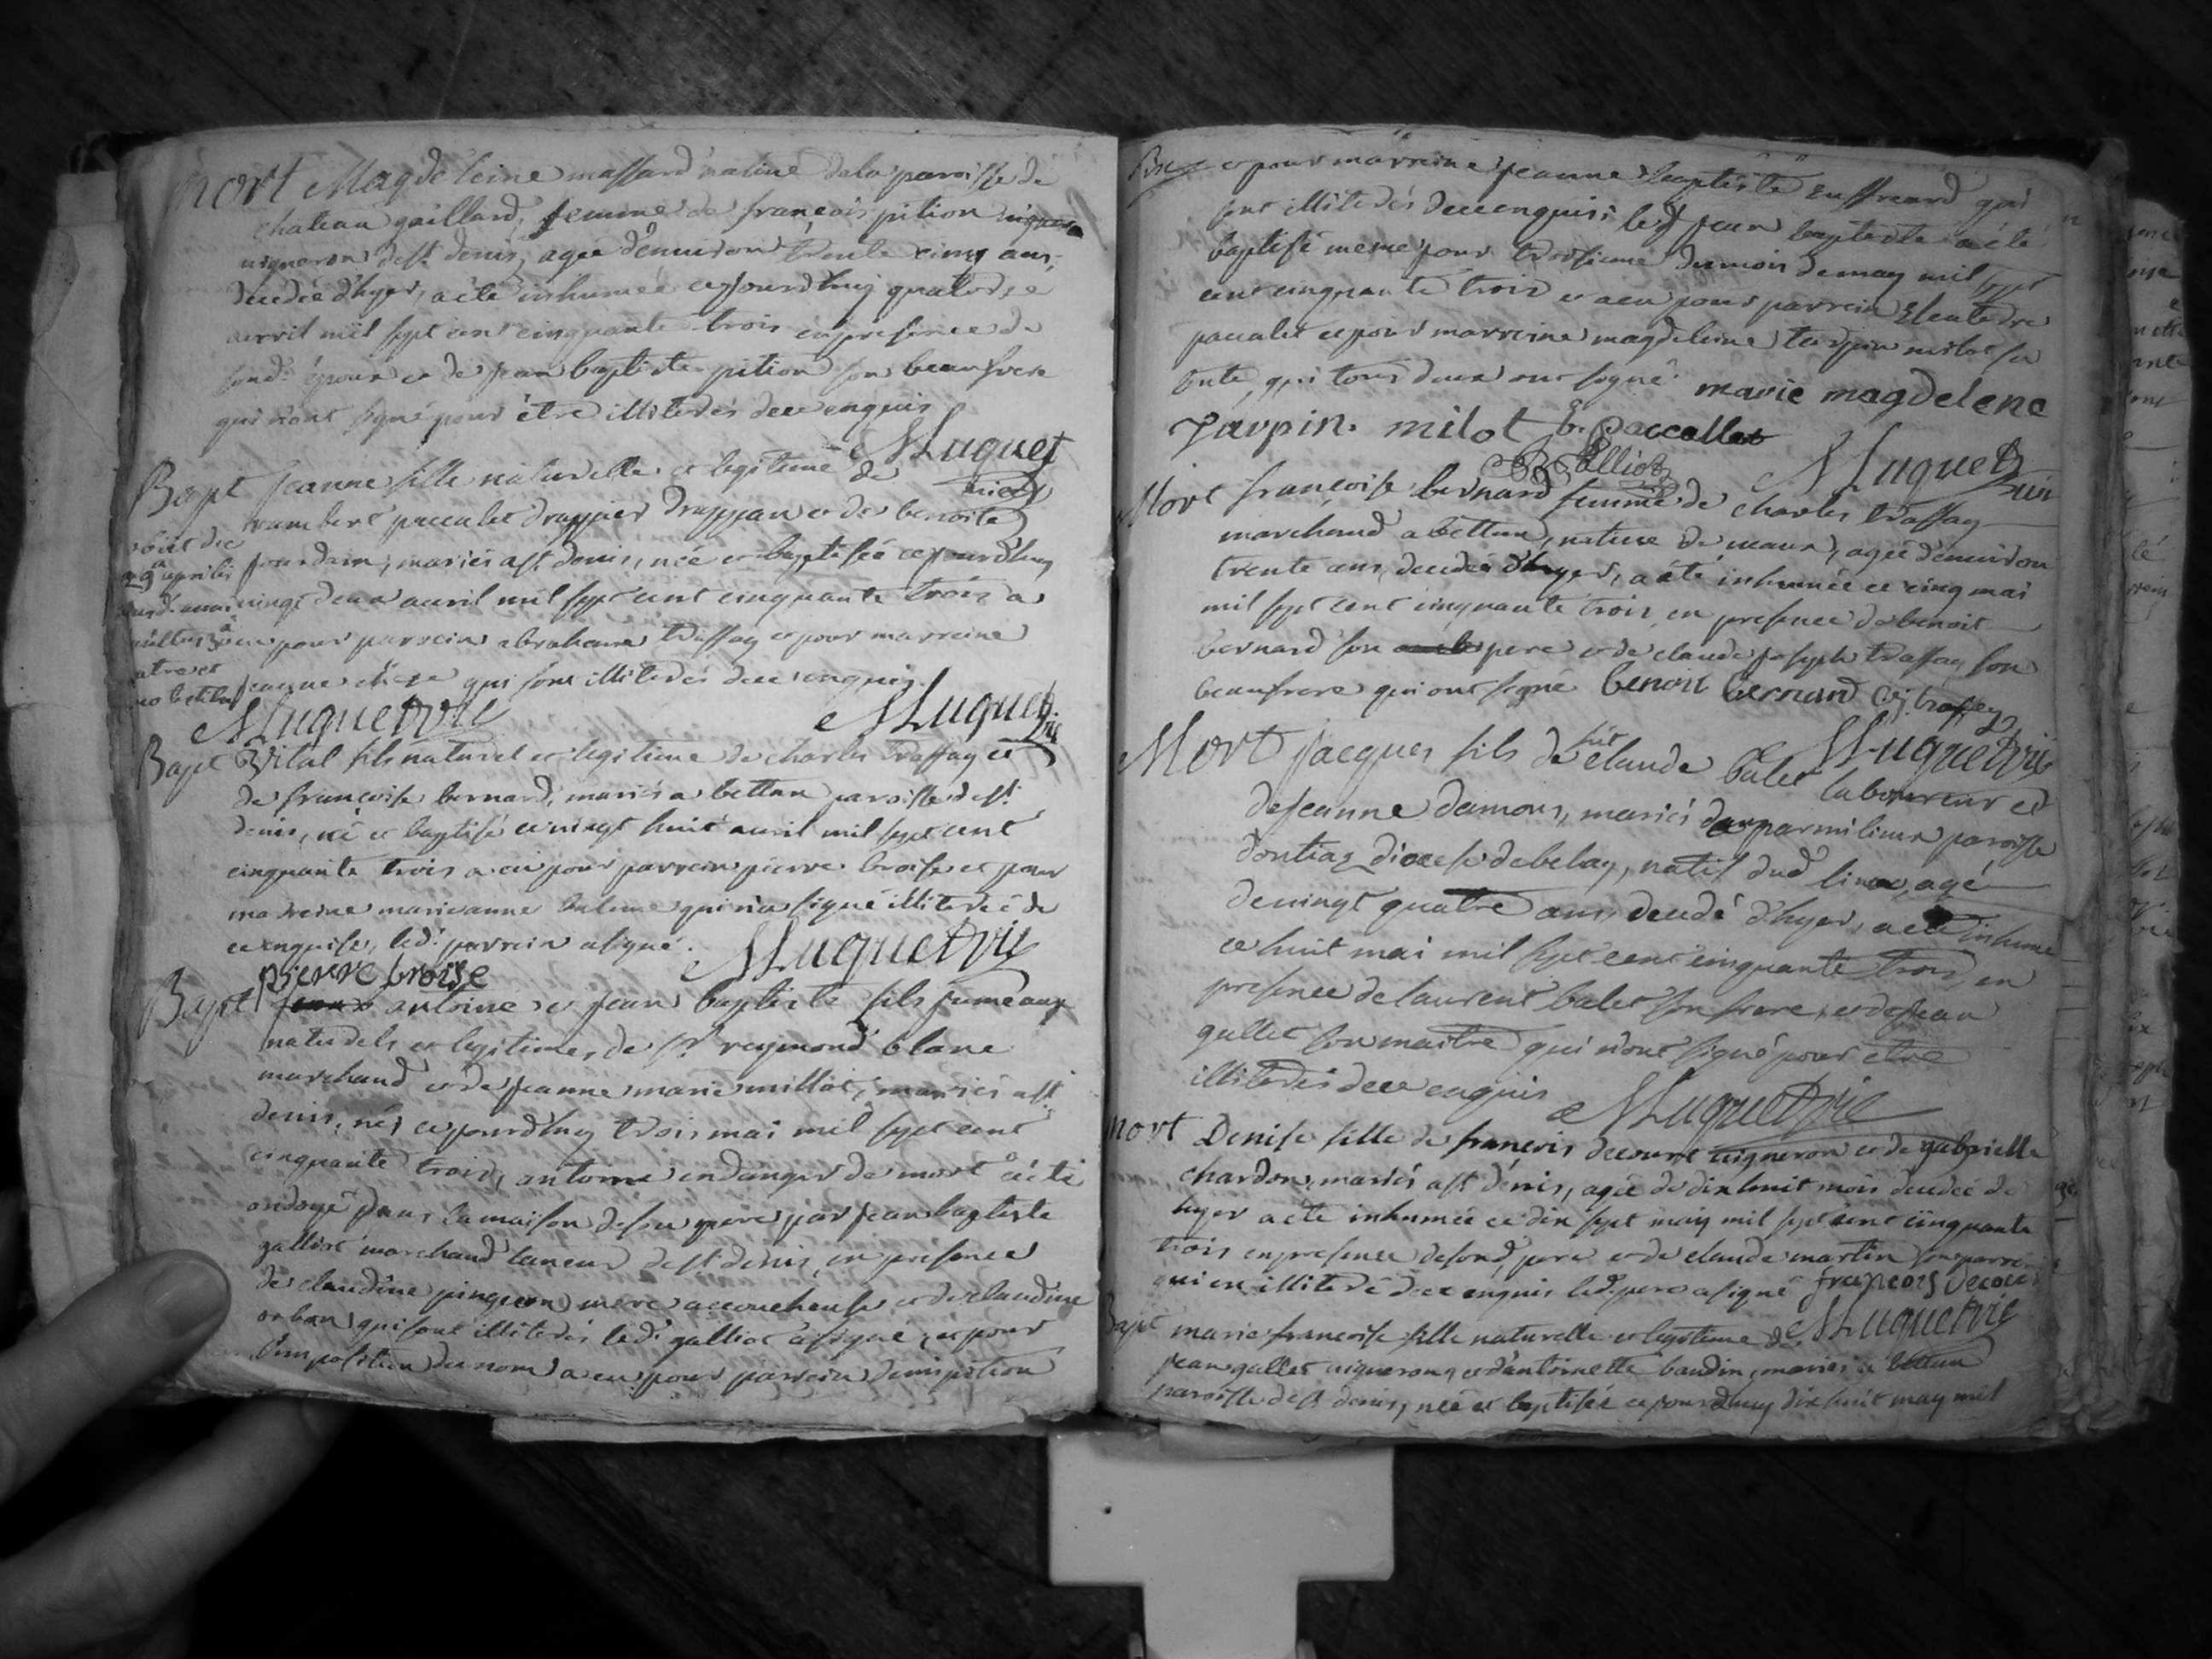 Mort Magdeleine massard native de la paroisse de
chateau gaillard, femme de françois pition
vigneron de st denis, agée d'environ trente cinq ans,
decedée d'hyer, a été inhumée cejourdhuy quatorze
avril mil sept cent cinquante trois en presence de
sond. epoux et de jean baptiste pition son beaufrere
qui n'ont signé pour être illiterés de ce enquis
MLuquet vic
Bapt Jeanne fille naturelle et legitime de
rambert paccalet drappier et de benoite
jourdain, mariés a st denis, née et baptisée cejourdhuy
vingt deux avril mil sept cent cinquante trois a
eu pour parrein abraham trassay et pour marreine
jeanne qui sont illiterés de ce enquis.
obiit die
29a aprilis
MLuquet vic MLuquet vic
Bapt Vital fils naturel et legitime de charles trassay et
de françoise bernard, mariés a bettan paroisse de st
denis, né et baptisé ce vingt huit avril mil sept cent
cinquante trois a eu pour parrein pierre broise et pour
marreine marieanne qui n'a signé illiterée de
ce enquise, led. parrein a signé.
pierre broise MLuquet vic
Bapt antoine et jean baptiste fils jumeaux
naturels et legitimes de sr reymond blanc
marchand et de jeanne marie millot, mariés a st
denis, nés cejourdhuy trois mai mil sept cent
cinquante trois, antoine en danger de mort a été
ondoyé dans la maison de son pere par jean baptiste
galliot marchand taneur de st denis, en presence
de claudine pingeon mere accoucheuse et de claudine
orban qui sont illiterés led. galliot a signé, et pour
l'imposition du nom a eu pour parrein denis pition
et pour marreine jeanne baptiste qui
sont illiterés de ce enquis; led. jean baptiste a été
baptisé meme jour troisieme du mois de may mil sept
cent cinquante trois et a eu pour parrein
paccalet et pour marreine magdeleine turpin milot sa
tante, qui tous deux ont signé. marie magdelene
turpin. milot b. paccallet
galliot MLuquet vic
Mort françoise bernard femme de charles trassay
marchand a bettan, native de vaux, agée d'environ
trente ans, decedée d'hyer, a été inhumée ce cinq mai
mil sept cent cinquante trois en presence de benoit
bernard son pere et de claude joseph trassay son
beaufrere qui ont signé benoit bernard cj. trassay
MLuquet vic
Mort Jacques fils de fut claude balet laboureur et
de jeanne damons, mariés paroisse
d'ontiaz diocese de belay, natif dud. lieu, agé
de vingt quatre ans, decedé d'hyer, a été inhumé
ce huit mai mil sept cent cinquante trois, en
presence de laurent balet son frere, et de jean
gallet son maitre qui n'ont signé pour etre
illiterés de ce enquis MLuquet vic
Mort Denise fille de françois decourt vigneron et de gabrielle
chardon, mariés a st denis, agée de dix huit mois decedée de
hyer a été inhumée ce dix sept may mil sept cent cinquante
trois en presence de sond. pere et de claude martin son parrein
qui en illiteré de ce enquis led. pere a signé françois decour
MLuquet vic
Bapt marie françoise fille naturelle et legitime de
jean gallet vigneron, et d'antoinette baudin, mariés a bettan
paroisse de st denis, née et baptisée cejourdhuy dix huit may mil